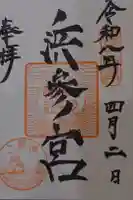 令和八年四月二日
浜参宮
奉拝